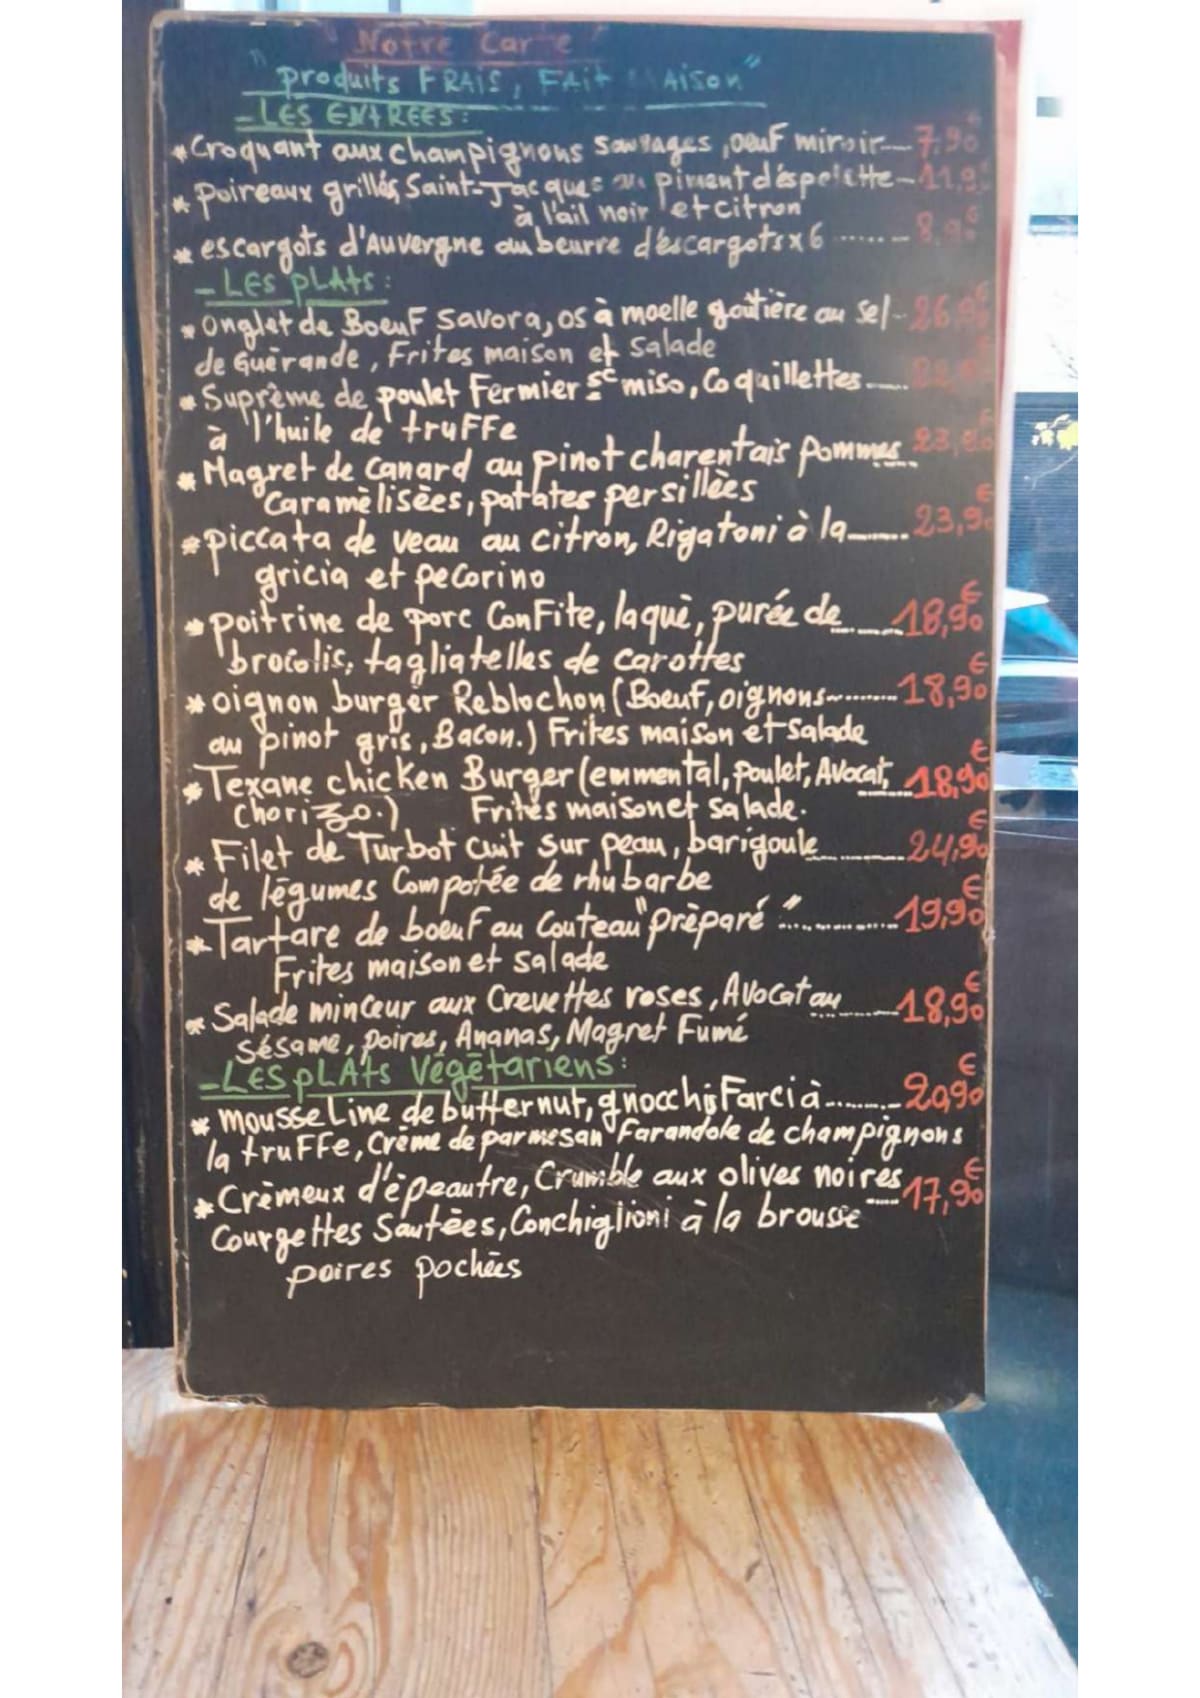 Notre Carte
"produits FRAIS, FAit Maison"
- LES ENTREES:
* Croquant aux champignons sauvages, oeuf miroir.... 7,90€
* Poireaux grillés, Saint-Jacques au piment d'éspelette - 11,90€
à l'ail noir et citron
* escargots d'Auvergne au beurre d'escargots x 6 ...... - 8,90€
- LES PLAts:
* Onglet de Boeuf Savora, os à moelle goutière au sel - 26,90€
de Guérande, Frites maison et salade
* Suprême de poulet Fermier sce miso, Coquillettes .....
à l'huile de truFFe
* Magret de Canard au pinot charentais Pommes 23,90€
Caramèlisèes, patates persillèes
* piccata de veau au citron, Rigatoni à la........ 23,90€
gricia et pecorino
* poitrine de porc ConFite, laquè, purée de ....... 18,90€
brocolis, tagliatelles de carottes
* oignon burger Reblochon (Boeuf, oignons......... 18,90€
au pinot gris, Bacon.) Frites maison et salade
* Texane chicken Burger (emmental, poulet, Avocat, ...... 18,90€
chorizo.) Frites maison et salade.
* Filet de Turbot cuit sur peau, barigoule........... 24,90€
de légumes Compotée de rhubarbe
* Tartare de boeuf au Couteau "prèparé" ............ 19,90€
Frites maison et salade
* Salade minceur aux Crevettes roses, Avocat au ........ 18,90€
Sésame, poires, Ananas, Magret Fumé
- LES pLAts Végétariens:
* mousseline de butternut, gnocchis Farci à........- 20,90€
la truFFe, Crème de parmesan Farandole de champignons
* Crèmeux d'èpeautre, Crumble aux olives noires ..... 17,90€
Courgettes Sautèes, Conchiglioni à la brousse
poires pochèes